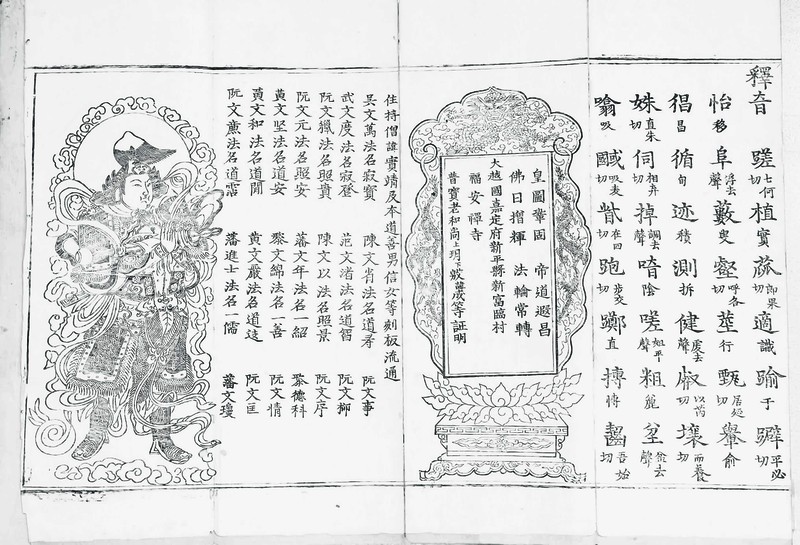 釋音 蹉七何切 植實 蓏郎果切 適識 踰于 平必切
怡移 阜浮去聲 藪叟 壑呼各切 莖行 甄居延切 轝俞
猖昌 循旬 迹積 測拆 健去聲 壤而養切
姝直朱切 伺切 掉調去聲 喑陰 嗟姐平聲 粗麁 坌去聲
噏吸 眥在四切 跑步交切 躑直 摶 齧切
皇圖鞏固 帝道遐昌
佛日增輝 法輪常轉
大越國嘉定府新平縣新富臨村
福安禪寺
普寶老和尚上玥下等証明
住持僧諱實靖及本道善男信女等刻板流通
吳文萬法名寂實 陳文肖法名道尋 阮文事
武文度法名寂登 范文渚法名道習 阮文柳
阮文獵法名照貴 陳文以法名照景 阮文序
阮文元法名照安 蕃文年法名一紹 黎德科
黃文坚法名道安 黎文綿法名一善 阮文情
黃文和法名道開 黃文嚴法名道遠 阮文匡
阮文薰法名道霑 蕃進士法名一儒 蕃文瓊